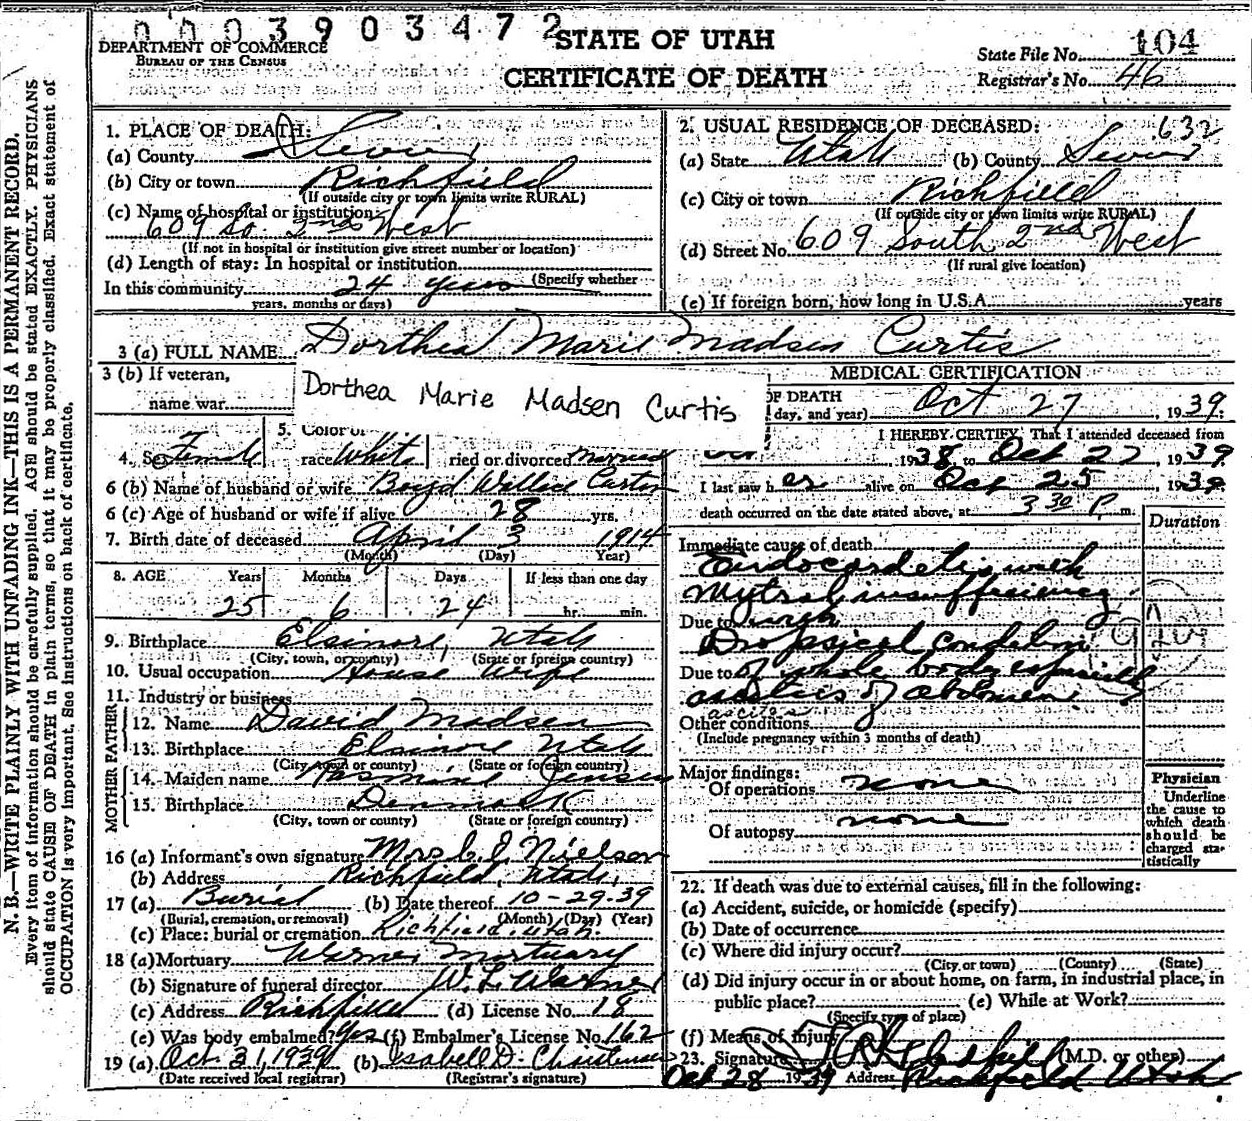 0003903472
DEPARTMENT OF COMMERCE
BUREAU OF THE CENSUS
STATE OF UTAH
CERTIFICATE OF DEATH
State File No. 104
Registrar's No. 46
N. B.—WRITE PLAINLY WITH UNFADING INK—THIS IS A PERMANENT RECORD.
Every item of information should be carefully supplied. AGE should be stated EXACTLY. PHYSICIANS
should state CAUSE OF DEATH in plain terms, so that it may be properly classified. Exact statement of
OCCUPATION is very important. See instructions on back of certificate.
1. PLACE OF DEATH:
(a) County Sevier
(b) City or town Richfield
(If outside city or town limits write RURAL)
(c) Name of hospital or institution:
609 So. 2nd West
(If not in hospital or institution give street number or location)
(d) Length of stay: In hospital or institution
(Specify whether
In this community 24 years
years, months or days)
2. USUAL RESIDENCE OF DECEASED: 632
(a) State Utah (b) County Sevier
(c) City or town Richfield
(If outside city or town limits write RURAL)
(d) Street No. 609 South 2nd West
(If rural give location)
(e) If foreign born, how long in U.S.A. years
3 (a) FULL NAME Dorthea Marie Madsen Curtis
3 (b) If veteran,
name war
Dorthea Marie Madsen Curtis
5. Color or
4. Sex Female race White ried or divorced Married
6 (b) Name of husband or wife Boyd Wallace Curtis
6 (c) Age of husband or wife if alive 28 yrs.
7. Birth date of deceased April 3 1914
(Month) (Day) Year)
8. AGE Years Months Days If less than one day
25 6 24 hr. min.
9. Birthplace Elsinore, Utah
(City, town, or county) (State or foreign country)
10. Usual occupation House Wife
11. Industry or business
FATHER
12. Name David Madsen
13. Birthplace Elsinore Utah
(City town or county) (State or foreign country)
MOTHER
14. Maiden name Rasmine Jensen
15. Birthplace Denmark
(City, town or county) (State or foreign country)
16 (a) Informant's own signature Mrs C. J. Nielson
(b) Address Richfield, Utah,
17 (a) Burial (b) Date thereof 10-29-39
(Burial, cremation, or removal) (Month) (Day) (Year)
(c) Place: burial or cremation Richfield, Utah.
18 (a) Mortuary Warner Mortuary
(b) Signature of funeral director W. L. Warner
(c) Address Richfield (d) License No. 18
(e) Was body embalmed? Yes (f) Embalmer's License No. 162
19 (a) Oct. 31, 1939 (b) Isabell D. Christensen
(Date received local registrar) (Registrar's signature)
MEDICAL CERTIFICATION
OF DEATH
day, and year) Oct 27, 1939
I HEREBY CERTIFY, That I attended deceased from
1938, to Oct 27, 1939
I last saw her alive on Oct 25 1939
death occurred on the date stated above, at 3 30 P. m.
Duration
Immediate cause of death
Endocardetis with
Mytral insufficiency
Due to with
Dropsical condition
Due to of whole body especially
ascites of Abdomen.
ascites
Other conditions
(Include pregnancy within 3 months of death)
Major findings:
Of operations none
Of autopsy none
Physician
Underline
the cause to
which death
should be
charged sta-
tistically
22. If death was due to external causes, fill in the following:
(a) Accident, suicide, or homicide (specify)
(b) Date of occurrence
(c) Where did injury occur?
(City or town) (County) (State)
(d) Did injury occur in or about home, on farm, in industrial place, in
public place? (e) While at Work?
(Specify type of place)
(f) Means of injury
23. Signature (M.D. or other)
Oct 28 1939 Address Richfield Utah